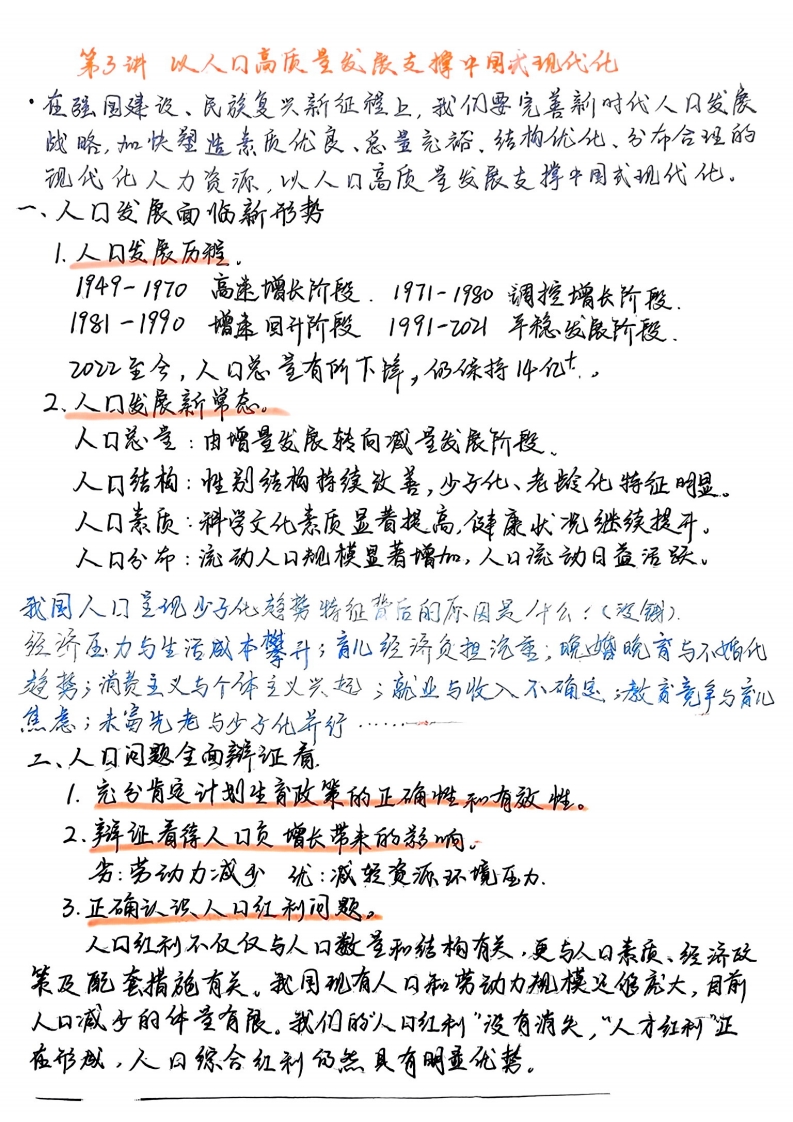 第3讲 以人口高质量发展支撑中国式现代化
·在强国建设、民族复兴新征程上,我们要完善新时代人口发展
战略,加快塑造素质优良、总量充裕、结构优化、分布合理的
现代化人力资源,以人口高质量发展支撑中国式现代化。
一、人口发展面临新形势
1.人口发展历程。
1949-1970 高速增长阶段. 1971-1980 调控增长阶段.
1981-1990 增速回升阶段 1991-2021 平稳发展阶段.
2022至今,人口总量有所下降,仍保持14亿+。
2.人口发展新常态。
人口总量:由增量发展转向减量发展阶段。
人口结构:性别结构持续改善,少子化、老龄化特征明显。
人口素质:科学文化素质显著提高,健康状况继续提升。
人口分布:流动人口规模显著增加,人口流动日益活跃。
我国人口呈现少子化趋势特征背后的原因是什么?(没钱).
经济压力与生活成本攀升;育儿经济负担沉重;晚婚晚育与不婚化
趋势;消费主义与个体主义兴起;就业与收入不确定;教育竞争与育儿
焦虑;未富先老与少子化并行……
二、人口问题全面辩证看.
1.充分肯定计划生育政策的正确性和有效性。
2.辩证看待人口负增长带来的影响。
劣:劳动力减少 优:减轻资源环境压力.
3.正确认识人口红利问题。
人口红利不仅仅与人口数量和结构有关,更与人口素质、经济政
策及配套措施有关。我国现有人口和劳动力规模足够庞大,目前
人口减少的体量有限。我们的“人口红利”没有消失,“人才红利”正
在形成,人口综合红利仍然具有明显优势。